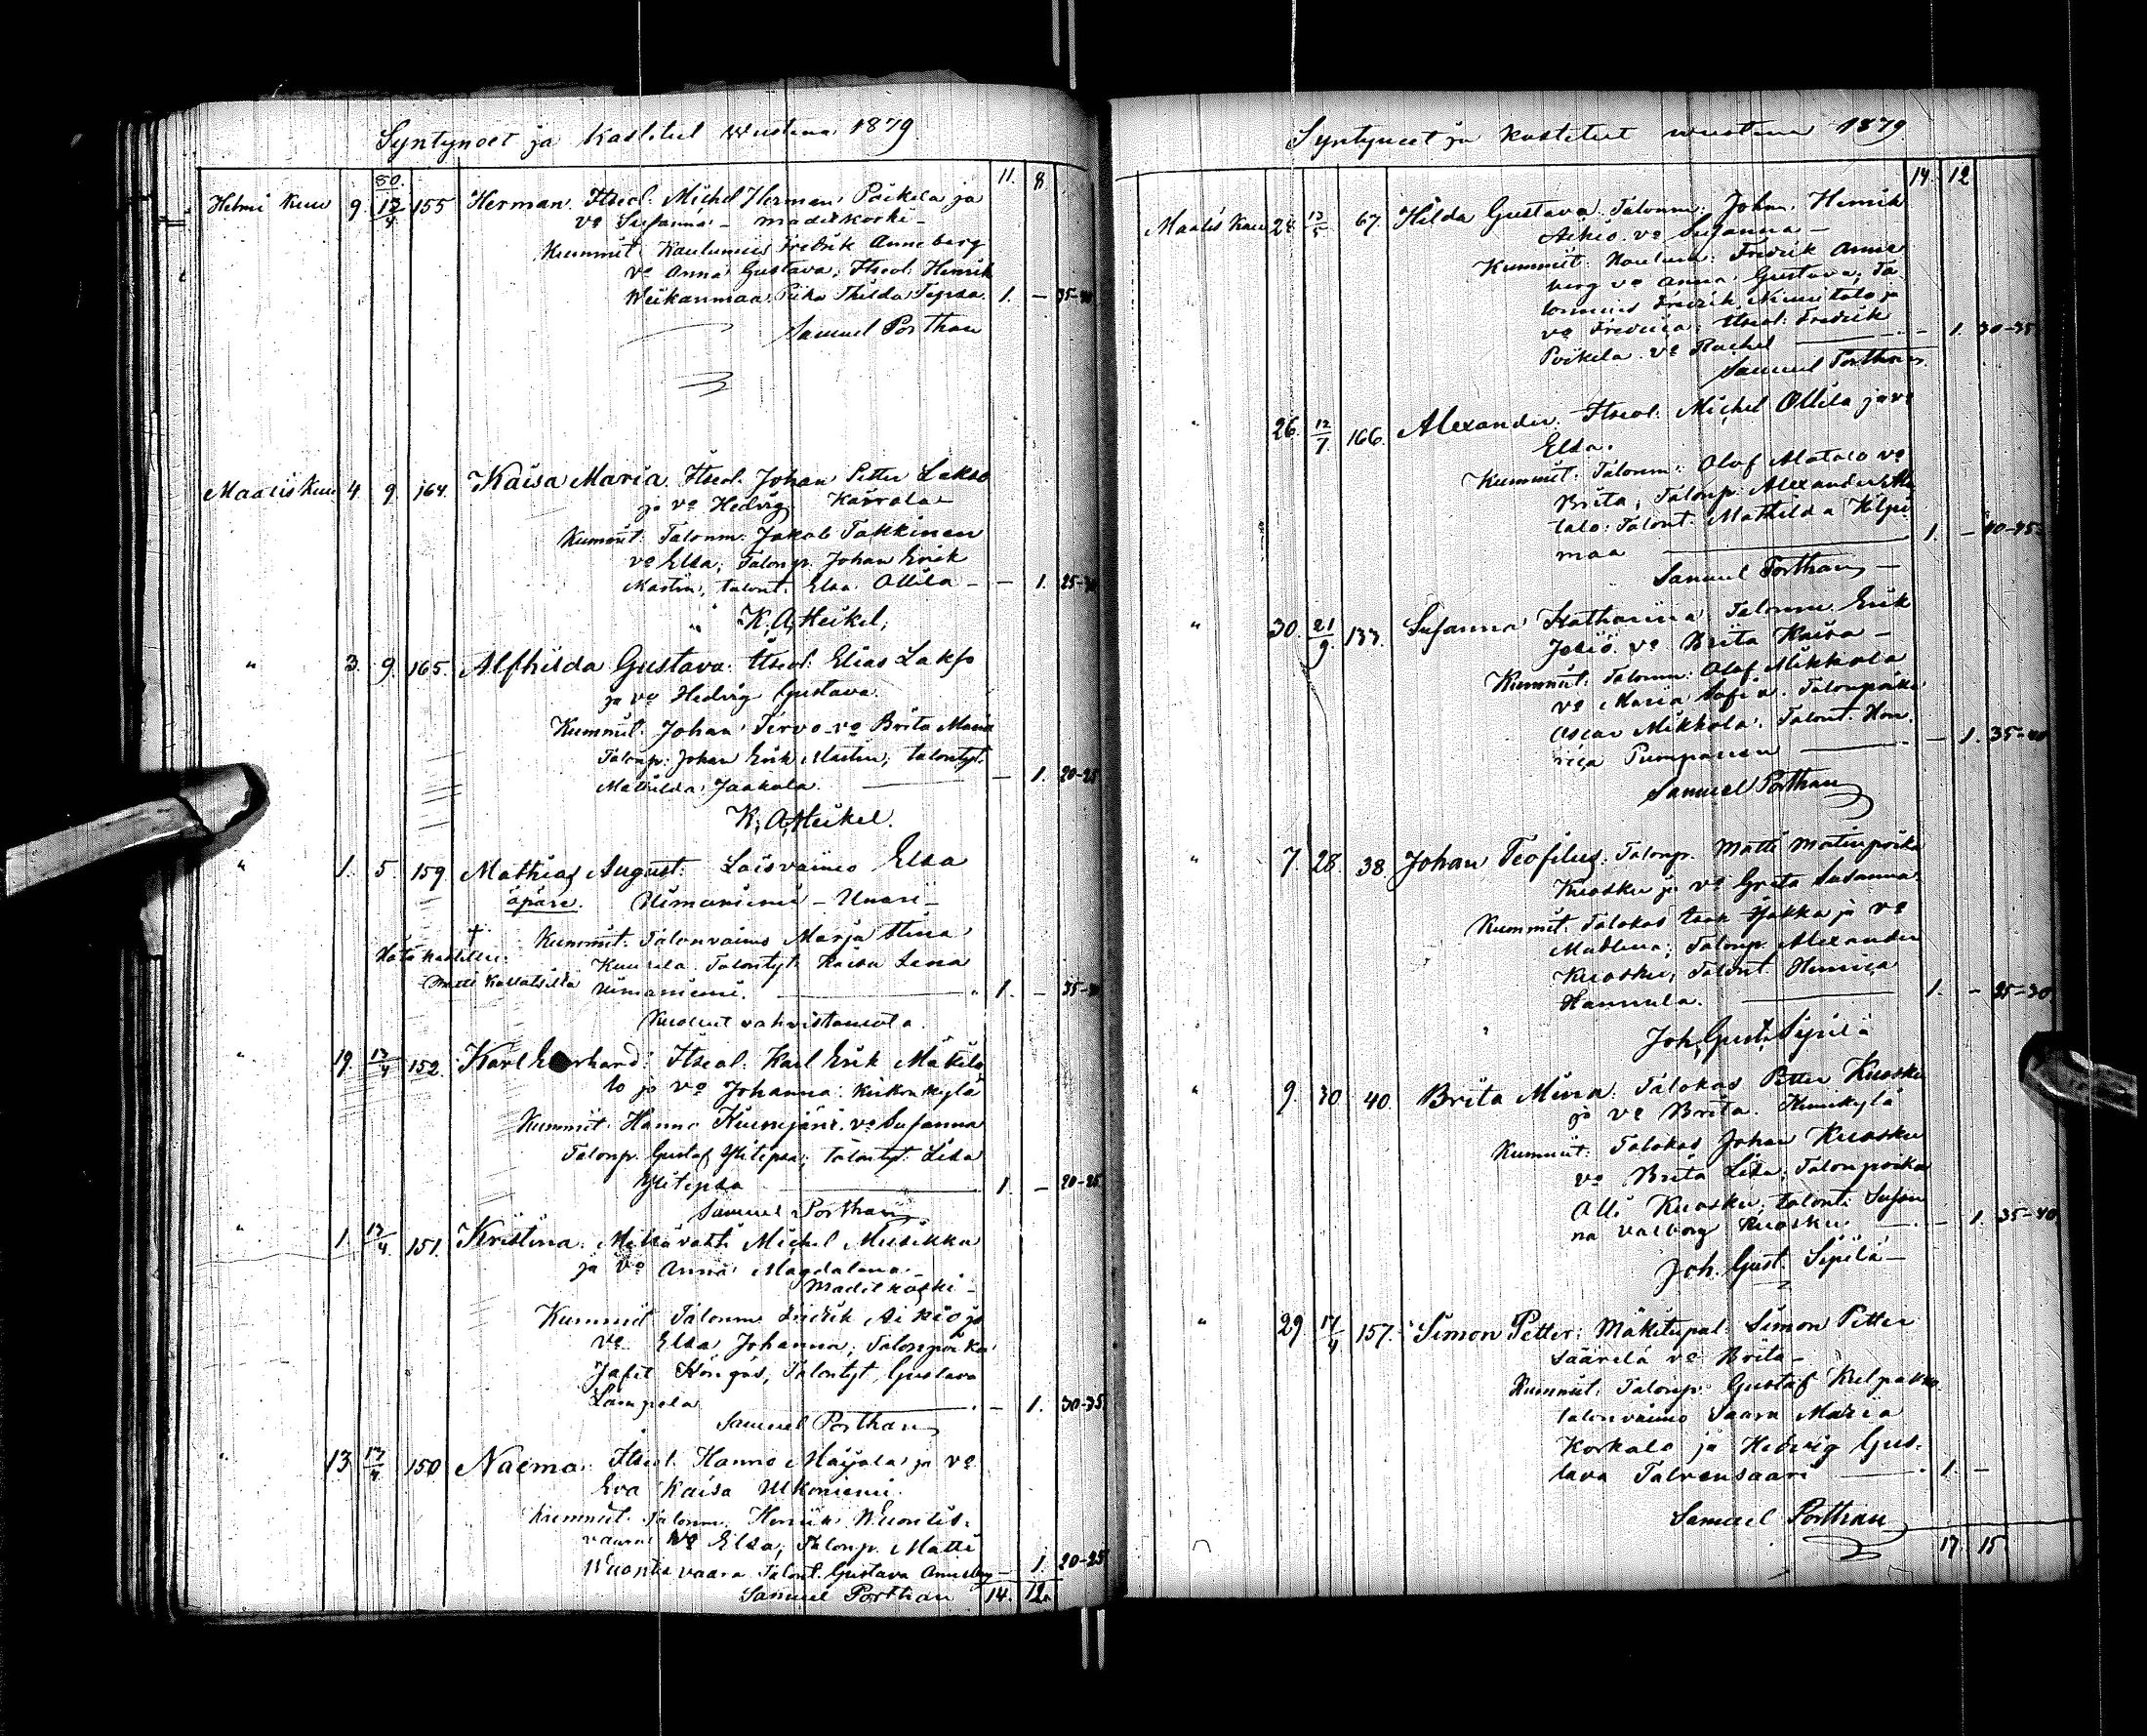 Syntyneet ja kastetut wuotena 1879.
11. 8
Helmi kuu 9. 80. 12/4 155 Herman. Itseol. Michel Herman Poikela ja
vo Susanna - Madetkoski -
Kummit: Fredrik Anneberg
vo Anna Gustava, Itseol. Henrik
Piika Thilda Tepsa. 1. - 35-40
Samuel Porthan
Maaliskuu 4. 9. 164. Kaisa Maria. Itseol. Johan Petter Lakso
ja vo Hedvig
Kummit: Talonm. Jakob Takkinen
vo Elsa, Talonp. Johan Erik
Martin, talont. Elsa Ollila - - 1. 25-30
K. A. Heikel.
" 3. 9. 165. Alfhilda Gustava. Itseol. Elias Lakso
ja vo Hedvig Gustava.
Kummit: Johan Tervo vo Brita Maria
Talonp. Johan Erik Martin, talontyt.
Mathilda Jaakola. - 1. 20-25
K. A. Heikel.
" 1. 5. 159. Mathias August. Loisvaimo Elsa
äpärä. Uimaniemi - Unari -
Kummit: Talonvaimo Marja Stina
Hätäkastettu. Kuusela Talontyt. Kaisa Lena
Matti Uimaniemi. 1. - 35-
vahvistamata.
" 19. 13/4 152. Karl Itseol. Karl Erik Mäkita
lo ja vo Johanna. Kirkonkylä
Kummit: Hannu vo Susanna
Talonp. Gustaf Ylitepsa, Talontyt. Lisa
Ylitepsa 1. - 20-25
Samuel Porthan
" 1. 13/4 151. Kristina. Michel
ja vo Anna Magdalena.
Madetkoski -
Kummit: Talonm. Fredrik Aikio ja
vo Elsa Johanna, Talonpoika
Jafet Köngäs, Talontyt. Gustava
Lampela - 1. 30-35
Samuel Porthan
" 13. 13/4 150 Naëma. Itseol. Hannu Maijala ja vo
Eva Kaisa Ulkoniemi.
Kummit: Talonm. Henrik Wuontis-
vaara vo Elsa, Talonp. Matti
Wuontisvaara Talont. Gustava Anneberg - 1. 20-25
Samuel Porthan 14. 12.
Syntyneet ja kastetut wuotena 1879
14. 12
Maaliskuu 24 13/5 67. Hilda Gustava. Talonm. Johan Henrik
Aikio vo Susanna -
Kummit: Fredrik Anne
berg vo Anna Gustava, Ta
lonmies Fredrik Niemitalo ja
vo Fredrica, Itseol. Fredrik
Poikela vo Rachel - 1. 30-35
Samuel Porthan.
" 26. 12/7. 166. Alexander. Itseol. Michel Ollila ja vo
Elsa.
Kummit: Talonm. Olof Matalo vo
Brita, Talonp. Alexander
talo. Talont. Mathilda Kilpi
maa 1. - 40-45
Samuel Porthan -
" 30. 21/9. 137. Susanna Katharina. Talonm. Erik
Jesiö vo Brita Kaisa -
Kummit: Talonm. Olof Mikkola
vo Maria Sofia. Talonpoika
Oscar Mikkola. Talont. Hen
rica Pumpanen - 1. 35-40
Samuel Porthan
" 7. 28. 38. Johan Teofilus. Talonp. Matti Matinpoika
Kuosku ja vo Greta Susanna.
Kummit: Talokas Isak ja vo
Madlena, Talonp. Alexander
Kuosku, Talont. Henrica
Hannula. 1. - 25-30
Joh. Gust. Sipilä
" 9. 30 40. Brita Mina. Talokas Petter Kuosku
ja vo Brita.
Kummit: Talokas Johan Kuosku
vo Brita Lisa, Talonpoika
Olli Kuosku, talont. Susan
na Valborg Kuosku - 1. 35-40
Joh. Gust. Sipilä -
" 29 17/4 157. Simon Petter. Mäkitupal. Simon Petter
Säärelä vo Brita -
Kummit: Talonp. Gustaf Kulpakko
talonvaimo Saara Maria
Korkalo ja Hedvig Gus-
tava Talvensaari 1. -
Samuel Porthan
17. 15